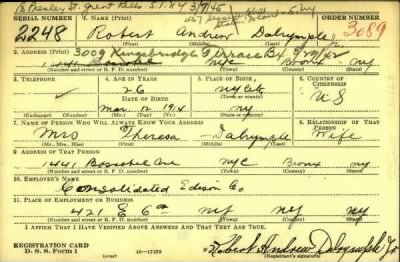 SERIAL NUMBER 1. NAME (Print) ORDER NUMBER
2248 Robert Andrew Dalrymple 3089
(First) (Middle) (Last)
2. ADDRESS (Print) 3009 Kingsbridge Terrace
1441 NYC Bronx NY
(Number and street or R. F. D. number) (Town) (County) (State)
3. TELEPHONE 4. AGE IN YEARS 5. PLACE OF BIRTH 6. COUNTRY OF CITIZENSHIP
26 NY City
DATE OF BIRTH
Mar. 12 1914 NY U S
(Exchange) (Number) (Mo.) (Day) (Yr.) (Town or county) (State or country)
7. NAME OF PERSON WHO WILL ALWAYS KNOW YOUR ADDRESS 8. RELATIONSHIP OF THAT PERSON
Mrs Theresa Dalrymple Wife
(Mr., Mrs., Miss) (First) (Middle) (Last)
9. ADDRESS OF THAT PERSON
1441 Ave NYC Bronx NY
(Number and street or R. F. D. number) (Town) (County) (State)
10. EMPLOYER'S NAME
Consolidated Edison Co
11. PLACE OF EMPLOYMENT OR BUSINESS
421 E 6 NY NY NY
(Number and street or R. F. D. number) (Town) (County) (State)
I AFFIRM THAT I HAVE VERIFIED ABOVE ANSWERS AND THAT THEY ARE TRUE.
REGISTRATION CARD
D. S. S. Form 1 (over) Robert Andrew Dalrymple Jr
(Registrant's signature)